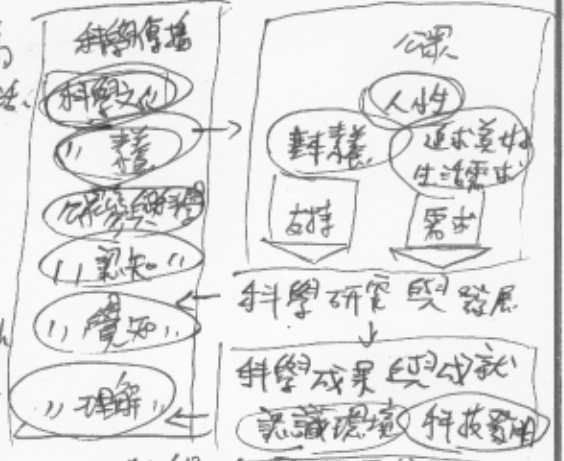 科學傳播
科學文化
〃 素養
公眾參與科學
〃 認知 〃
〃 覺知 〃
〃 理解 〃
公眾
人性
基本素養
追求美好
生活需求
支持
需求
科學研究與發展
科學成果與成就
認識環境
科技發明